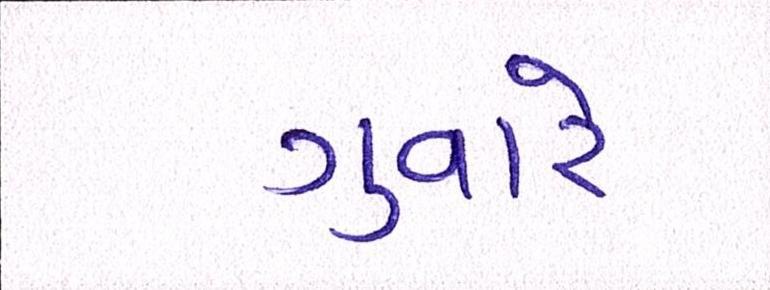 ગુવારે